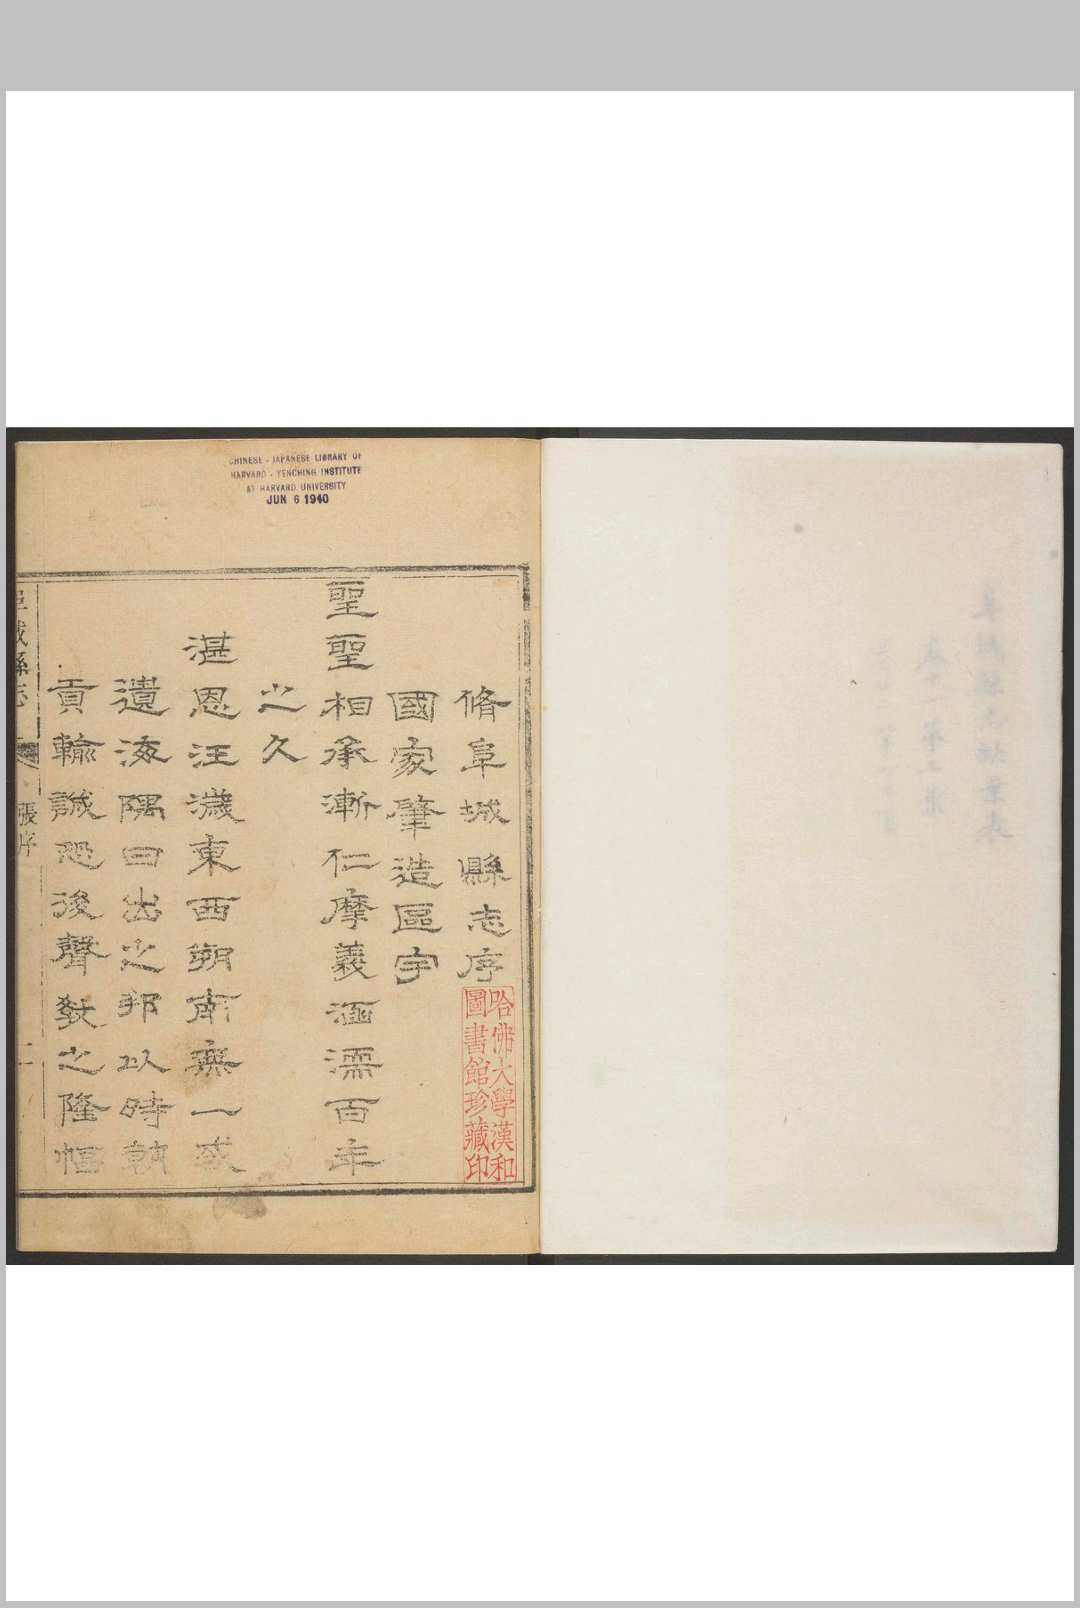 CHINESE - JAPANESE LIBRARY OF
HARVARD - YENCHING INSTITUTE
AT HARVARD UNIVERSITY
JUN 6 1940
脩阜城縣志序
哈佛大學漢和
圖書館珍藏印
國家肇造區宇
聖聖相承漸仁摩義涵濡百年
之久
湛恩汪濊東西朔南無一或
遺海隅日出之邦以時朝
貢輸誠恐後聲敎之隆幅
阜城縣志
張序
一